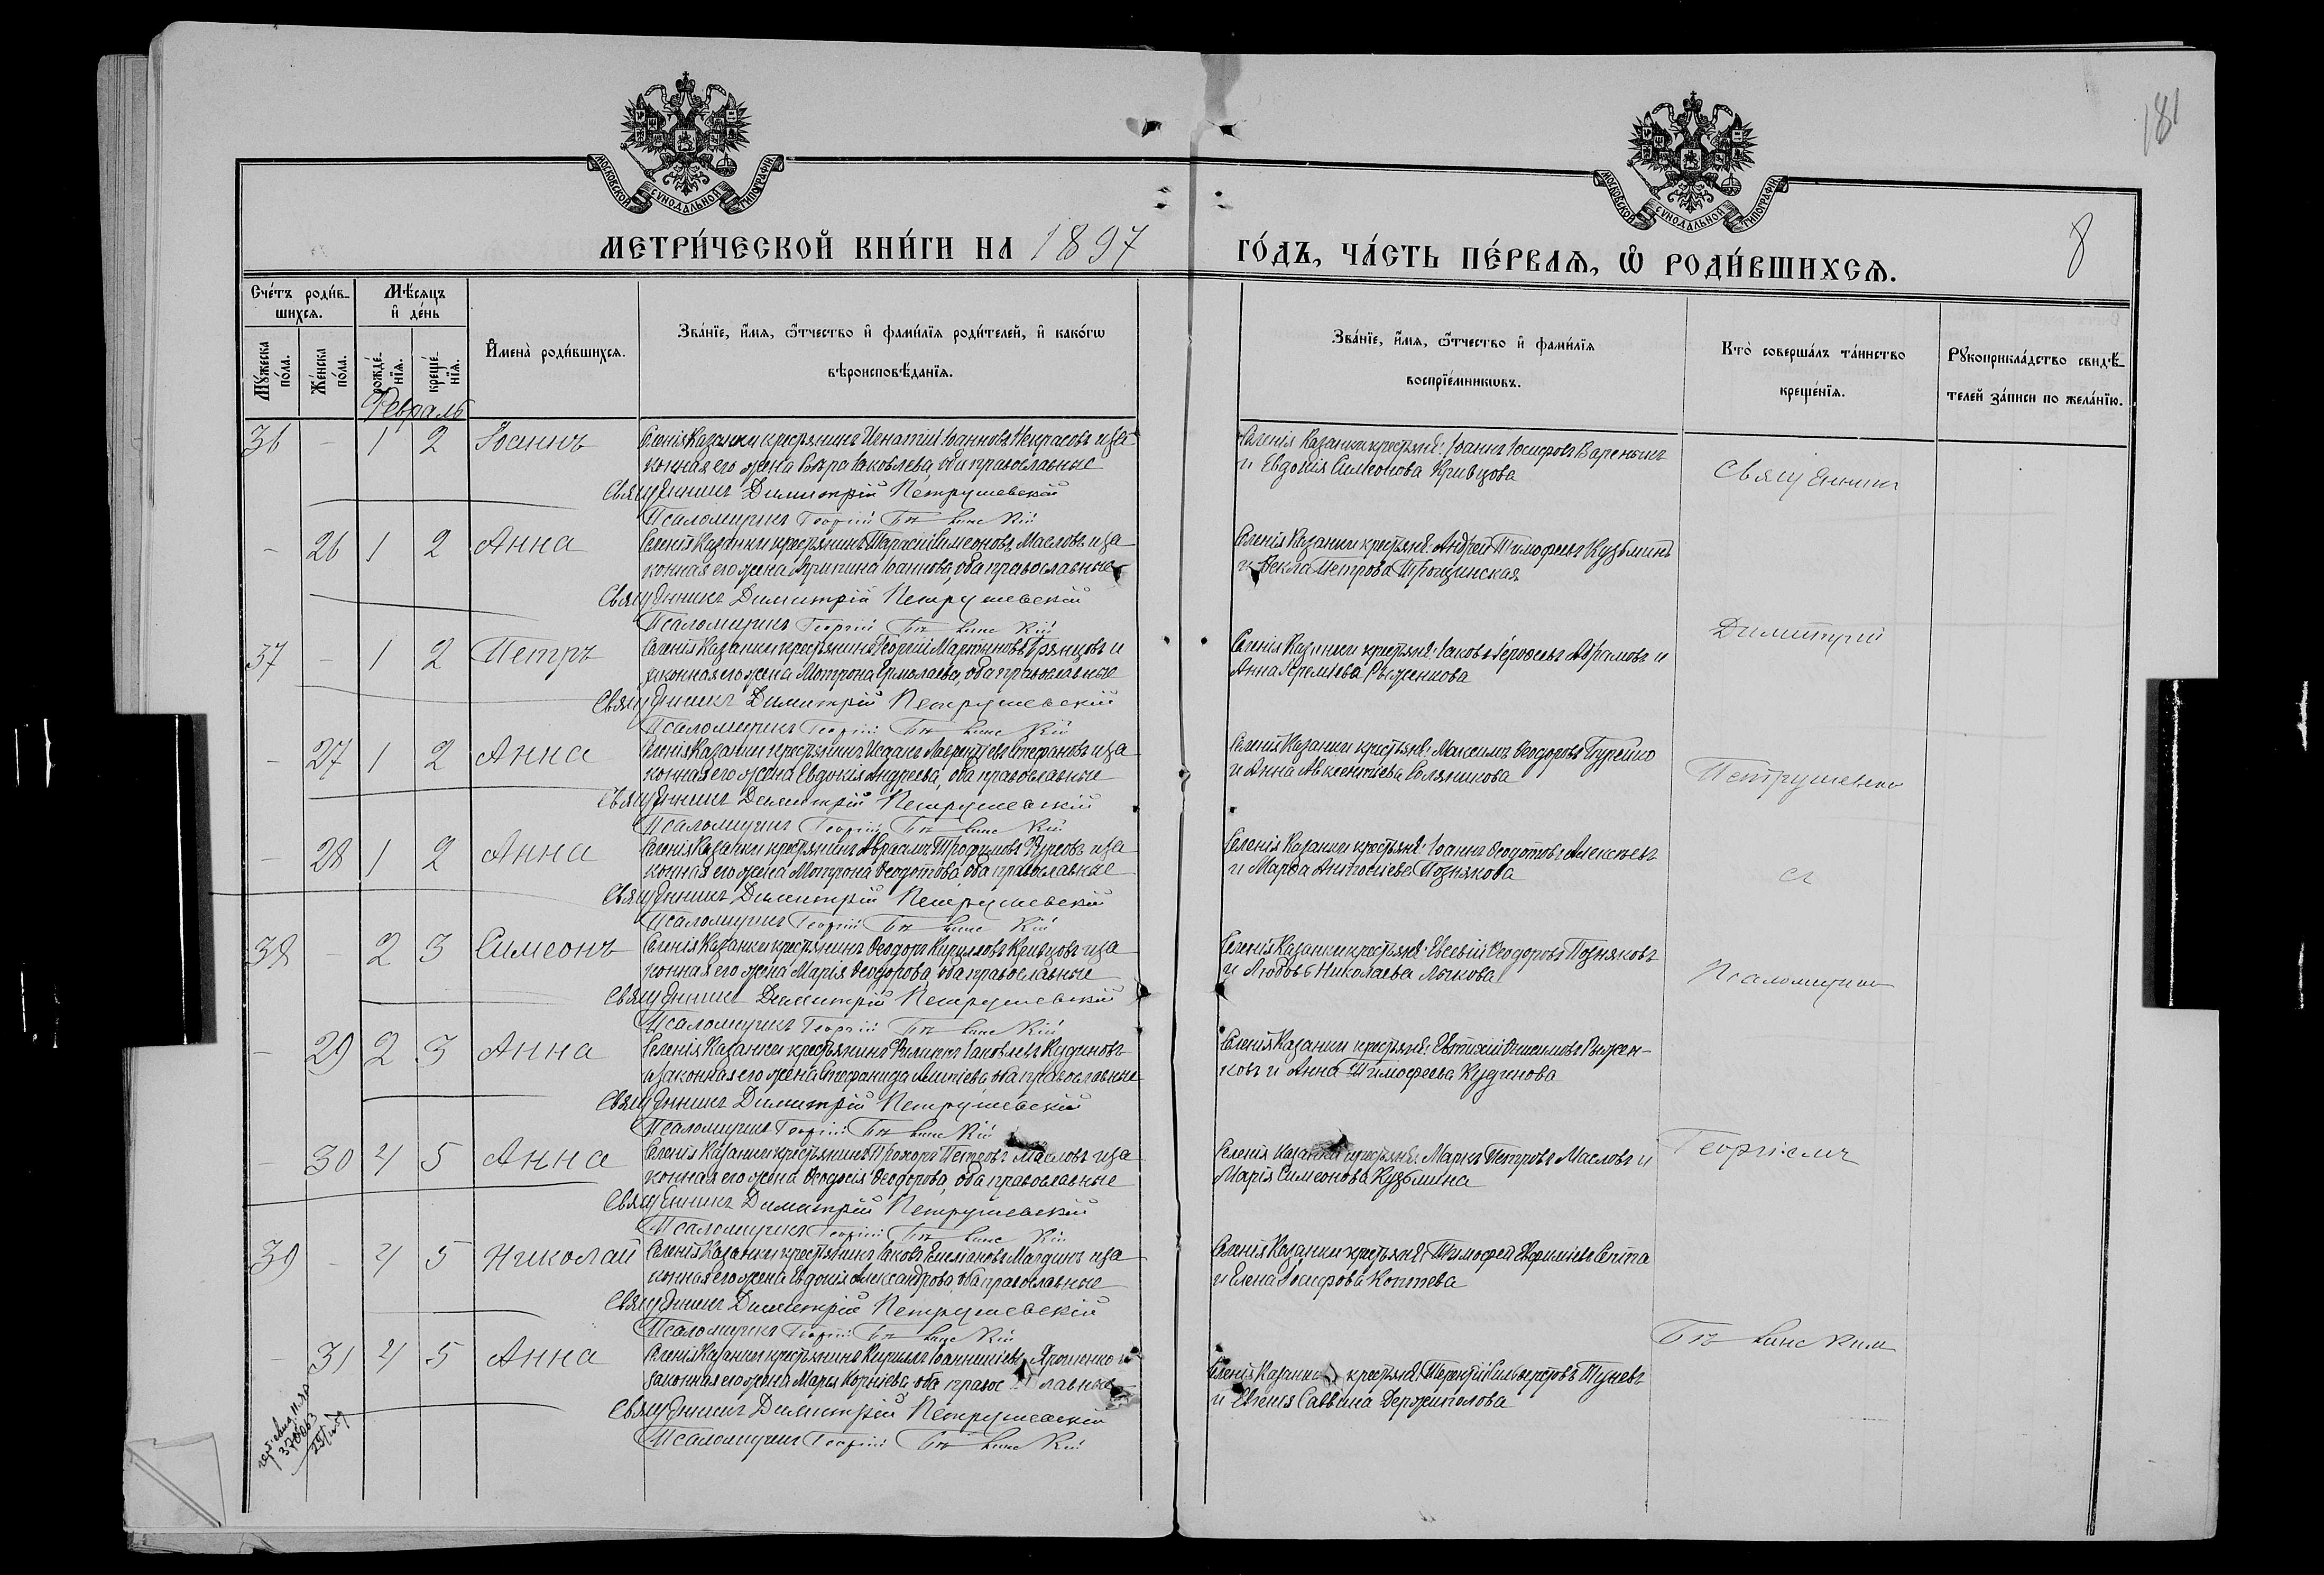 181
МОСКОВСКОЙ СѴНОДАЛЬНОЙ ТИПОГРАФІИ
МОСКОВСКОЙ СѴНОДАЛЬНОЙ ТИПОГРАФІИ
МЕТРИ́ЧЕСКОЙ КНИ́ГИ НА 1897
ГО́ДЪ, ЧА́СТЬ ПЕ́РВАѦ, Ѽ РОДИ́ВШИХСѦ.
8
Сче́тъ роди́в-
шихсѧ.
Мѣ́сѧцъ
и҆ де́нь
Мꙋ́жеска
по́ла.
Же́нска
по́ла.
рожде́-
нїѧ.
креще́-
нїѧ.
И҆мена̀ роди́вшихсѧ.
Зва́нїе, и҆́мѧ, ѻ҆́тчество и҆ фами́лїѧ роди́телей, и҆ како́гѡ
вѣроисповѣ́данїѧ.
Зва́нїе, и҆́мѧ, ѻ҆́тчество и҆ фами́лїѧ
воспрїе́мникѡвъ.
Кто̀ соверша́лъ та́инство
креще́нїѧ.
Рꙋкоприкла́дство свидѣ́-
телей за́писи по жела́нїю.
Февраль
36 - 1 2 Іоаннъ Селенія Казанки крестьянинъ Игнатій Іоанновъ Некрасовъ и за-
конная его жена Вѣра Іаковлева, оба православные
Священникъ Димитрій Петрушевскій
Псаломщикъ Георгій
Селенія Казанки крестьяне: Іоаннъ Іосифовъ
и Евдокія Симеонова Кривцова
Священникъ
- 26 1 2 Анна Селенія Казанки крестьянинъ Тарасій Симеоновъ Масловъ и за-
конная его жена Агрипина Іоаннова, оба православные
Священникъ Димитрій Петрушевскій
Псаломщикъ Георгій
Селенія Казанки крестьяне: Андрей Тимофеевъ Кузьминъ
и Ѳекла Петрова Трощинская
Димитрій
37 - 1 2 Петръ Селенія Казанки крестьянинъ Георгій Мартыновъ Брянцовъ и
законная его жена Мотрона Ермолаева, оба православные
Священникъ Димитрій Петрушевскій
Псаломщикъ Георгій
Селенія Казанки крестьяне: Іаковъ Абрамовъ и
Анна Іереміева Рыженкова
- 27 1 2 Анна Селенія Казанки крестьянинъ Лаврентіевъ Стефановъ и за-
конная его жена Евдокія Андреева, оба православные
Священникъ Димитрій Петрушевскій
Псаломщикъ Георгій
Селенія Казанки крестьяне: Максимъ Ѳеодоровъ
и Анна Авксентіева
Петрушевскій
- 28 1 2 Анна Селенія Казанки крестьянинъ Авраамъ Трофимовъ и за-
конная его жена Мотрона Ѳеодотова, оба православные
Священникъ Димитрій Петрушевскій
Псаломщикъ Георгій
Селенія Казанки крестьяне: Іоаннъ Ѳеодотовъ Алексѣевъ
и Марѳа Познякова
съ
38 - 2 3 Симеонъ Селенія Казанки крестьянинъ Ѳеодоръ Кириловъ Кривцовъ и за-
конная его жена Марія Ѳеодорова, оба православные
Священникъ Димитрій Петрушевскій
Псаломщикъ Георгій
Селенія Казанки крестьяне: Евсевій Ѳеодоровъ Позняковъ
и Любовь Николаева Лыкова
Псаломщикомъ
- 29 2 3 Анна Селенія Казанки крестьянинъ Филиппъ Іаковлевъ Кудиновъ
и законная его жена Стефанида оба православные
Священникъ Димитрій Петрушевскій
Псаломщикъ Георгій
Селенія Казанки крестьяне: Евтихій Рыжен-
ковъ и Анна Тимофеева Кудинова
- 30 4 5 Анна Селенія Казанки крестьянинъ Прохоръ Петровъ Масловъ и за-
конная его жена Ѳеодосія Ѳеодорова, оба православные
Священникъ Димитрій Петрушевскій
Псаломщикъ Георгій
Селенія Казанки крестьяне: Маркъ Петровъ Масловъ и
Марія Симеонова Кузьмина
Георгіемъ
39 - 4 5 Николай Селенія Казанки крестьянинъ Іаковъ Емеліановъ и за-
конная его жена Евдокія Александрова, оба православные
Священникъ Димитрій Петрушевскій
Псаломщикъ Георгій
Селенія Казанки крестьяне: Тимофей Евфиміевъ
и Елена Іосифова Коптева
- 31 4 5 Анна Селенія Казанки крестьянинъ Кириллъ Ярошенко и
законная его жена Марья Корніева оба православные
Священникъ Димитрій Петрушевскій
Псаломщикъ Георгій
Селенія Казанки крестьяне: Терентій Сильвестровъ
и Евгенія Саввина Держиполова